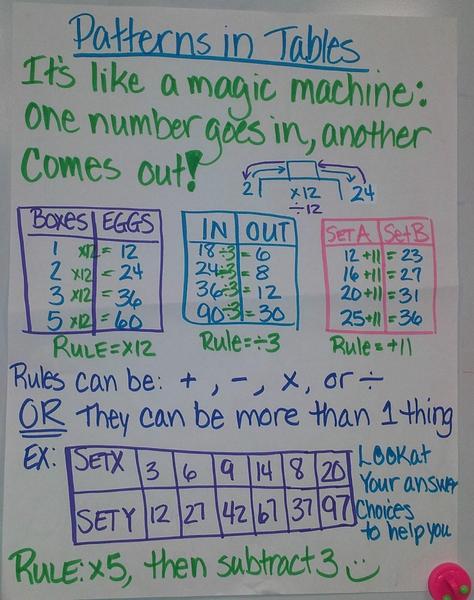 Patterns in Tables
It's like a magic machine:
one number goes in, another
comes out!
2 x12 24
÷12
BOXES EGGS
1 x12 = 12
2 x12 = 24
3 x12 = 36
5 x12 = 60
RULE=x12
IN OUT
18÷3 = 6
24÷3 = 8
36÷3 = 12
90÷3 = 30
Rule=÷3
SET A Set B
12 +11 = 23
16 +11 = 27
20 +11 = 31
25 +11 = 36
Rule=+11
Rules can be: +, -, x, or ÷
OR They can be more than 1 thing
EX:
SET X 3 6 9 14 8 20
SET Y 12 27 42 67 37 97
Look at
Your answer
Choices
to help you
RULE: x5, then subtract 3